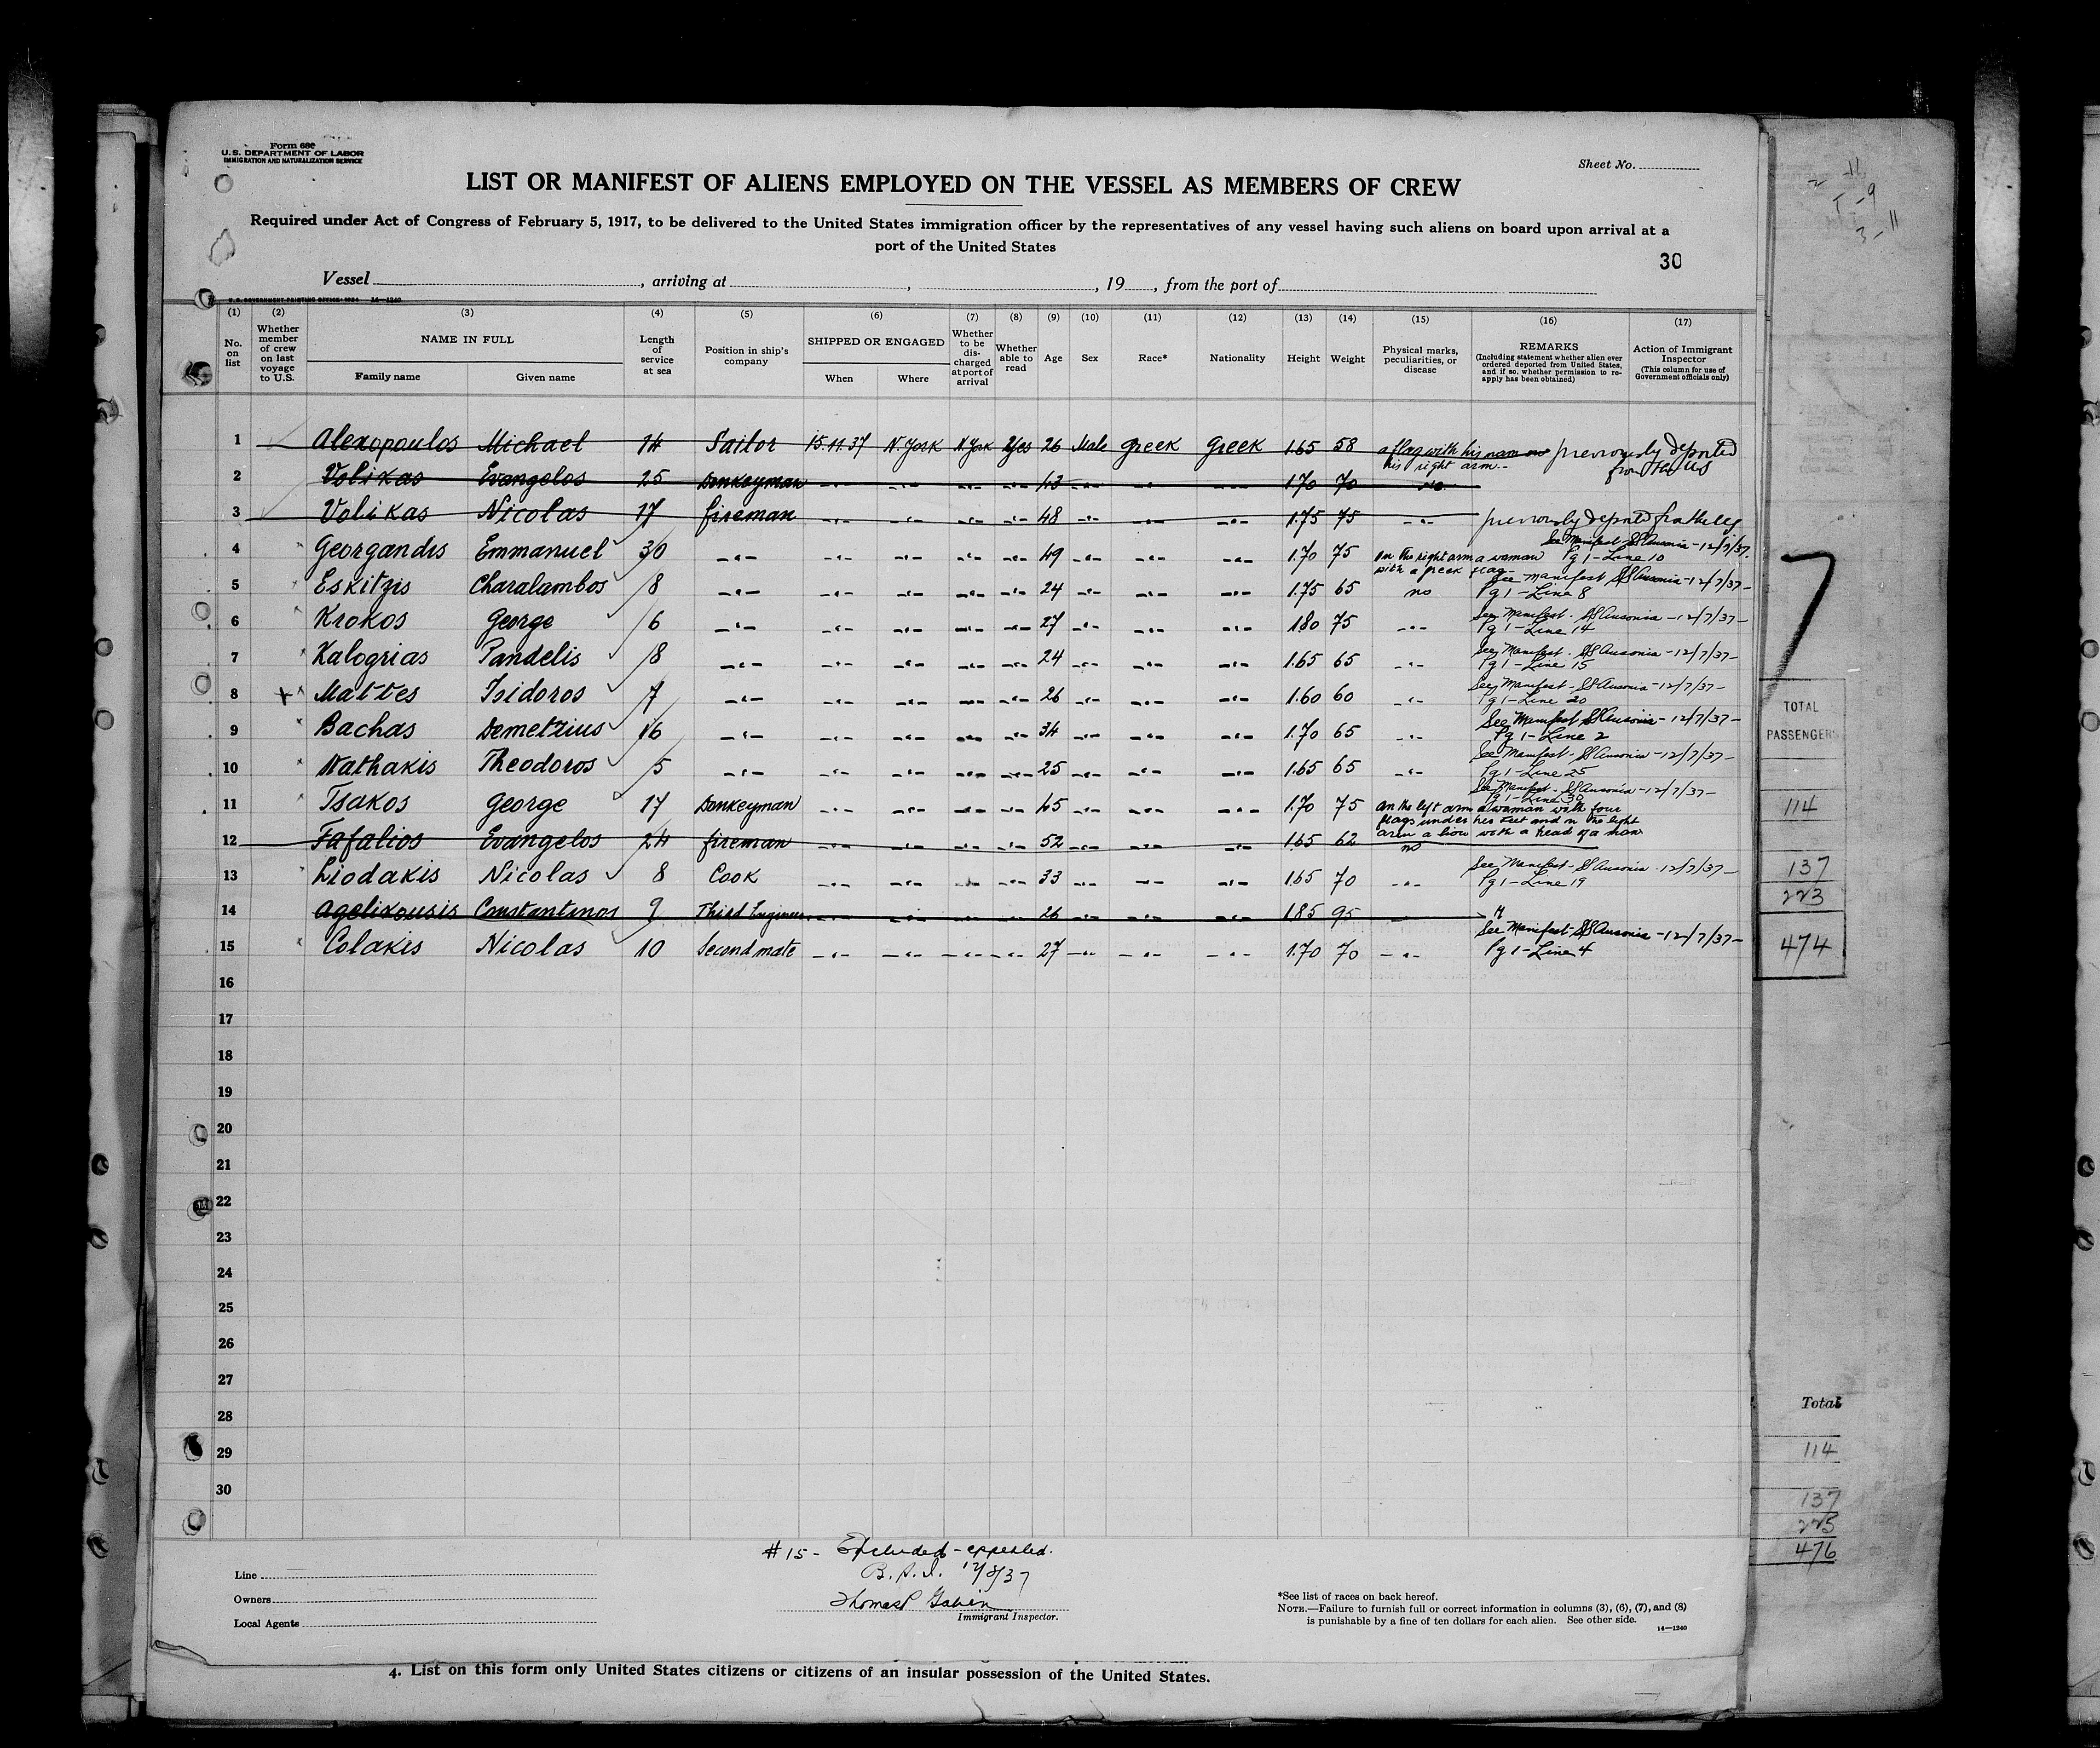 Form 680
U.S. DEPARTMENT OF LABOR
IMMIGRATION AND NATURALIZATION SERVICE
Sheet No.
LIST OR MANIFEST OF ALIENS EMPLOYED ON THE VESSEL AS MEMBERS OF CREW
Required under Act of Congress of February 5, 1917, to be delivered to the United States immigration officer by the representatives of any vessel having such aliens on board upon arrival at a
port of the United States
30
Vessel , arriving at , , 19 , from the port of
U.S. GOVERNMENT PRINTING OFFICE: 1934 14—1240
(1) No. on list
(2) Whether member of crew on last voyage to U.S.
(3) NAME IN FULL Family name Given name
(4) Length of service at sea
(5) Position in ship's company
(6) SHIPPED OR ENGAGED When Where
(7) Whether to be discharged at port of arrival
(8) Whether able to read
(9) Age
(10) Sex
(11) Race*
(12) Nationality
(13) Height
(14) Weight
(15) Physical marks, peculiarities, or disease
(16) REMARKS (Including statement whether alien ever ordered deported from United States, and if so, whether permission to reapply has been obtained)
(17) Action of Immigrant Inspector (This column for use of Government officials only)
1 Alexopoulos Michael 14 Sailor 15.11.37 N. York N. York Yes 26 Male Greek Greek 1.65 58 a flag with his name on his right arm previously deported from the US
2 Volikas Evangelos 25 Donkeyman -"- -"- -"- -"- 43 -"- -"- -"- 1.70 70 no
3 Volikas Nicolas 17 fireman -"- -"- -"- -"- 48 -"- -"- -"- 1.75 75 -"- previously deported
4 Georgandis Emmanuel 30 -"- -"- -"- -"- -"- 49 -"- -"- -"- 1.70 75 on the right arm a woman with a greek flag See Manifest SS Ausonia - 12/7/37 Pg 1 - Line 10
5 Eskitzis Charalambos 8 -"- -"- -"- -"- -"- 24 -"- -"- -"- 1.75 65 no See Manifest SS Ausonia - 12/7/37 - Pg 1 - Line 8
6 Krokos George 6 -"- -"- -"- -"- -"- 27 -"- -"- -"- 1.80 75 -"- See Manifest - SS Ausonia - 12/7/37 - Pg 1 - Line 14
7 Kalogrias Pandelis 8 -"- -"- -"- -"- -"- 24 -"- -"- -"- 1.65 65 -"- See Manifest - SS Ausonia - 12/7/37 - Pg 1 - Line 15
8 Mattes Isidoros 7 -"- -"- -"- -"- -"- 26 -"- -"- -"- 1.60 60 -"- See Manifest - SS Ausonia - 12/7/37 - Pg 1 - Line 20
9 Bachas Demetrius 16 -"- -"- -"- -"- -"- 34 -"- -"- -"- 1.70 65 -"- See Manifest SS Ausonia - 12/7/37 - Pg 1 - Line 2
10 Nathakis Theodoros 5 -"- -"- -"- -"- -"- 25 -"- -"- -"- 1.65 65 -"- See Manifest - SS Ausonia - 12/7/37 - Pg 1 - Line 25
11 Tsakos George 17 Donkeyman -"- -"- -"- -"- 45 -"- -"- -"- 1.70 75 on the left arm a woman with four flags under her feet and on the right arm a lion with a head of a man See Manifest - SS Ausonia - 12/7/37 - Pg 1 - Line 30
12 Fafalios Evangelos 24 fireman -"- -"- -"- -"- 52 -"- -"- -"- 1.65 62 no
13 Liodakis Nicolas 8 Cook -"- -"- -"- -"- 33 -"- -"- -"- 1.65 70 -"- See Manifest - SS Ausonia - 12/7/37 - Pg 1 - Line 19
14 Agelixousis Constantinos 9 Third Engineer -"- -"- -"- -"- 26 -"- -"- -"- 1.85 95
15 Colakis Nicolas 10 Second mate -"- -"- -"- -"- 27 -"- -"- -"- 1.70 70 -"- See Manifest - SS Ausonia - 12/7/37 - Pg 1 - Line 4
16
17
18
19
20
21
22
23
24
25
26
27
28
29
30
#15 - Excluded - appealed.
B.S.I. 12/8/37
Immigrant Inspector.
Line
Owners
Local Agents
*See list of races on back hereof.
NOTE.—Failure to furnish full or correct information in columns (3), (6), (7), and (8)
is punishable by a fine of ten dollars for each alien. See other side.
14—1240
4. List on this form only United States citizens or citizens of an insular possession of the United States.
7
TOTAL
PASSENGERS
114
137
223
474
Total
114
137
225
476